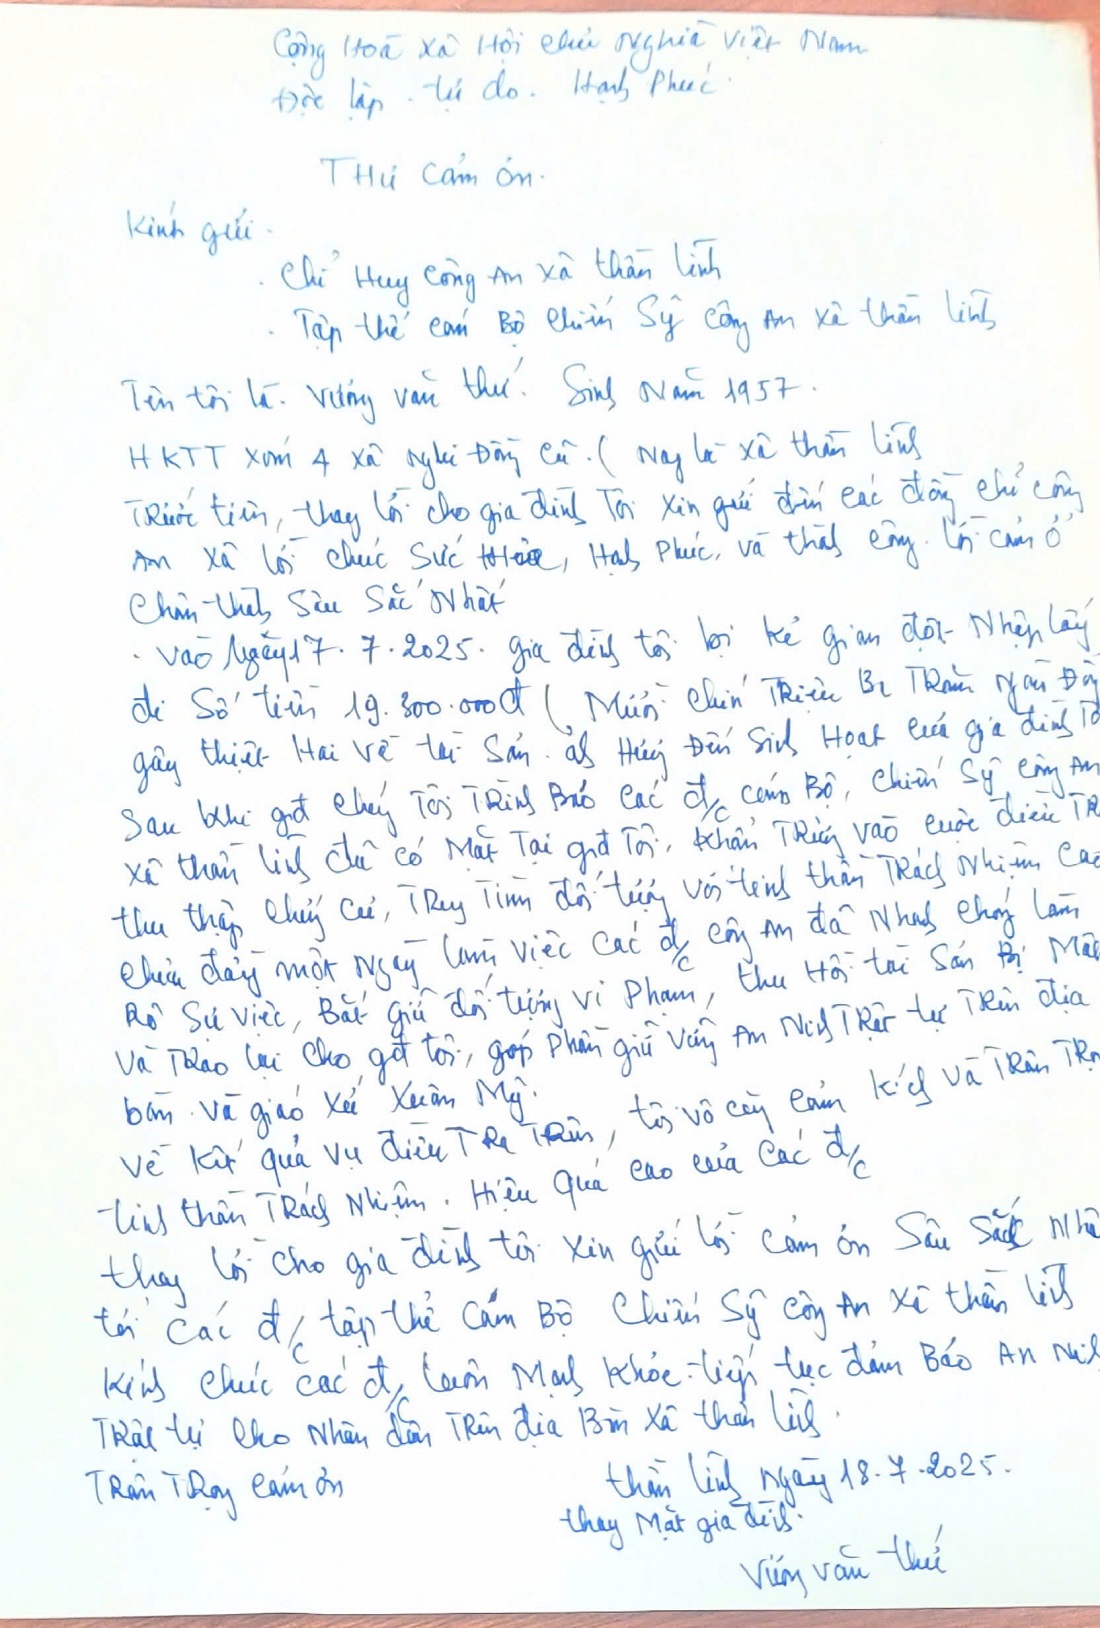 Cộng Hoà Xã Hội chủ Nghĩa Việt Nam
Độc lập . tự do . Hạnh Phúc
THư cảm ơn.
Kính gửi.
. Chỉ Huy Công An Xã thần lĩnh
. Tập thể cán Bộ chiến Sỹ công An xã thần lĩnh
Tên tôi là. Vương văn thư. Sinh Năm 1957.
HKTT xóm 4 xã Nghi Đồng cũ. ( Nay là xã thần lĩnh
Trước tiên, thay lời cho gia đình Tôi xin gửi đến các đồng chí công
An xã lời chúc Sức khỏe, Hạnh Phúc, và thành công. lời cảm ơ
Chân thành Sâu Sắc Nhất
. vào Ngày 17. 7. 2025. gia đình tôi bị kẻ gian đột Nhập lấy
đi Số tiền 19.300.000đ ( Mười Chín Triệu Ba Trăm Ngàn Đồ
gây thiệt Hại về tài Sản. ảh Hưởng Đến Sinh Hoạt của gia đình Tô
Sau khi gđ chúng Tôi Trình Báo các đ/c cán Bộ, chiến Sỹ công An
xã thần lĩnh đã có Mặt Tại gđ Tôi, khẩn Trương vào cuộc điều TR
thu thập chứng cứ, Truy Tìm đối tượng với tinh thần Trách Nhiệm Cao
chưa đầy một Ngày làm việc các đ/c công An đã Nhanh chóng làm
Rõ Sự việc, Bắt giữ đối tượng vi Phạm, thu Hồi tài Sản Bị Mất
Và Trao lại cho gđ tôi, góp Phần giữ Vững An Ninh Trật tự Trên địa
bàn. và giáo Xứ Xuân Mỹ.
Về kết quả vụ điều Tra Trên, tôi vô cùng cảm kích và Trân Trọ
tinh thần Trách Nhiệm. Hiệu Quả cao của các đ/c
thay lời cho gia đình tôi xin gửi lời cảm ơn Sâu Sắc Nhấ
tới các đ/c tập thể Cán Bộ Chiến Sỹ công An Xã thần lĩnh
Kính chúc các đ/c luôn Mạnh khỏe. tiếp tục đảm Bảo An Ninh
Trật tự cho Nhân dân Trên địa Bàn Xã thần lĩnh.
Trân Trọng cảm ơn
thần lĩnh Ngày 18.7.2025.
thay Mặt gia đình.
Vương văn thư